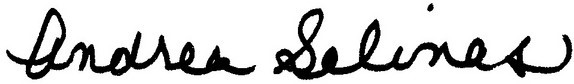 Andrea Salinas